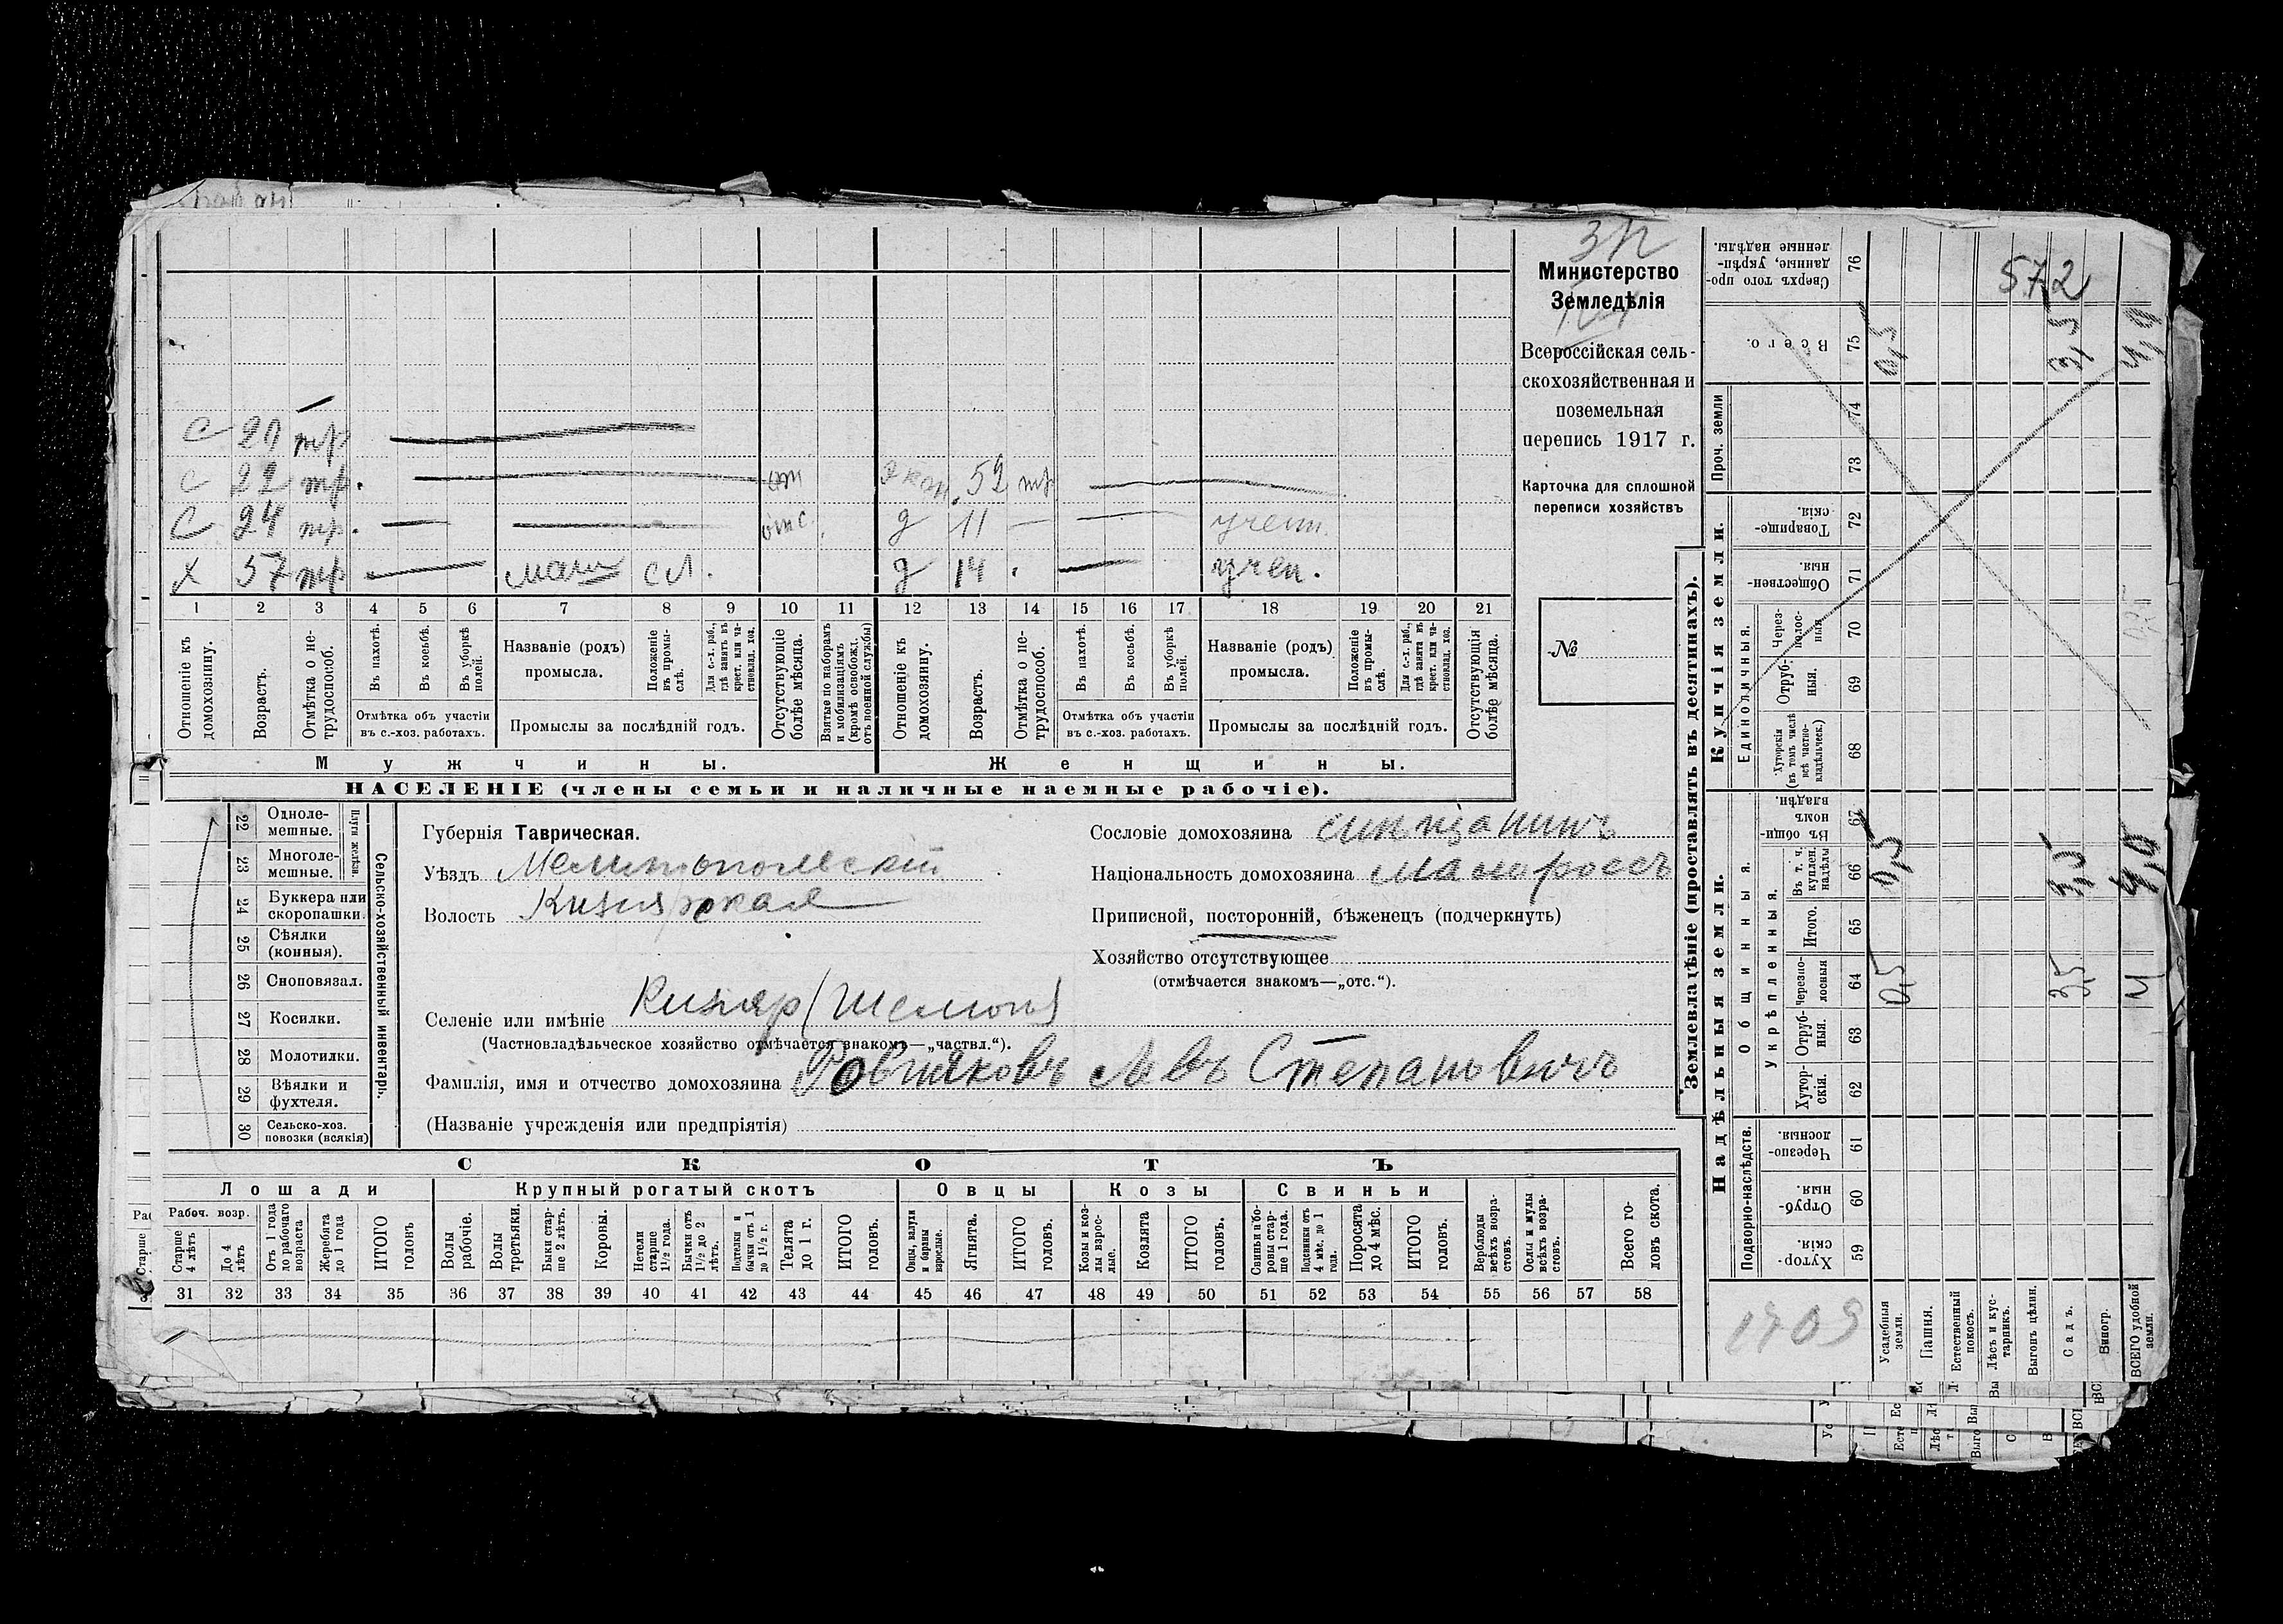 Министерство
Земледѣлія
Всероссійская сель-
скохозяйственная и
поземельная
перепись 1917 г.
Карточка для сплошной
переписи хозяйствъ
№
с 20 тр.
с 22 тр. от 52 тр
с 24 тр. отс. д 11 — учен.
х 57 тр сл. д 14 учен.
1 2 3 4 5 6 7 8 9 10 11 12 13 14 15 16 17 18 19 20 21
Отношеніе къ домохозяину.
Возрастъ.
Отмѣтка о не-трудоспособ.
Въ пахотѣ.
Въ косьбѣ.
Въ уборкѣ полей.
Отмѣтка объ участіи въ с.-хоз. работахъ.
Названіе (родъ) промысла.
Положеніе въ промы-слѣ.
Для с.-х. раб., гдѣ занятъ въ крест. или ча-стновлад. хоз.
Промыслы за послѣдній годъ.
Отсутствующіе болѣе мѣсяца.
Взятые по наборамъ и мобилизаціямъ (кромѣ освобожд. отъ военной службы)
Отношеніе къ домохозяину.
Возрастъ.
Отмѣтка о не-трудоспособ.
Въ пахотѣ.
Въ косьбѣ.
Въ уборкѣ полей.
Отмѣтка объ участіи въ с.-хоз. работахъ.
Названіе (родъ) промысла.
Положеніе въ промы-слѣ.
Для с.-х. раб., гдѣ занята въ крест. или ча-стновлад. хоз.
Промыслы за послѣдній годъ.
Отсутствующія болѣе мѣсяца.
Мужчины. Женщины.
НАСЕЛЕНІЕ (члены семьи и наличные наемные рабочіе).
22 Одноле-мешные.
23 Многоле-мешные.
Плуги желѣзн.
24 Буккера или скоропашки.
25 Сѣялки (конныя).
26 Сноповязал.
27 Косилки.
28 Молотилки.
29 Вѣялки и фухтеля.
30 Сельско-хоз. повозки (всякія)
Сельско-хозяйственный инвентарь.
Губернія Таврическая.
Уѣздъ Мелитопольскій
Волость Кизіярская
Селеніе или имѣніе Кизіяр
(Частновладѣльческое хозяйство отмѣчается знакомъ—„частвл.“).
Фамилія, имя и отчество домохозяина Левъ Степановичъ
(Названіе учрежденія или предпріятія)
Сословіе домохозяина
Національность домохозяина Малороссъ
Приписной, посторонній, бѣженецъ (подчеркнуть)
Хозяйство отсутствующее
(отмѣчается знакомъ—„отс.“).
СКОТЪ
Лошади Крупный рогатый скотъ Овцы Козы Свиньи
Рабоч. возр.
Старше 4 лѣтъ
До 4 лѣтъ
Отъ 1 года до рабочаго возраста
Жеребята до 1 года
ИТОГО головъ
Волы рабочіе.
Волы третьяки.
Быки стар-ше 2 лѣтъ.
Коровы.
Нетели старше 1½ года.
Бычки отъ 1½ до 2 лѣтъ.
Подтелки и бычки отъ 1 до 1½ г.
Телята до 1 г.
ИТОГО головъ.
Овцы, валухи и бараны взрослые.
Ягнята.
ИТОГО головъ.
Козы и коз-лы взрос-лые.
Козлята
ИТОГО головъ.
Свиньи и бо-ровы стар-ше 1 года.
Подсвинки отъ 4 мѣс. до 1 года.
Поросята до 4 мѣс.
ИТОГО головъ.
Верблюды всѣхъ возра-стовъ.
Ослы и мулы всѣхъ возра-стовъ.
Всего го-ловъ скота.
31 32 33 34 35 36 37 38 39 40 41 42 43 44 45 46 47 48 49 50 51 52 53 54 55 56 57 58
Землевладѣніе (проставлять въ десятинахъ).
Надѣльныя земли. Купчія земли.
Подворно-наслѣдств.
Общинныя.
Укрѣпленныя.
Единоличныя.
Проч. земли
Хутор-скія. 59
Отруб-ныя. 60
Черезпо-лосныя 61
Хутор-скія. 62
Отруб-ныя. 63
Черезпо-лосныя 64
Итого. 65
Въ т. ч. куплен. надѣлы 66
Въ общин-номъ владѣн. 67
Хуторскія (въ томъ числѣ всѣ частно-владѣльческ.) 68
Отруб-ныя. 69
Через-полос-ныя 70
Обществен-ныя 71
Товарище-скія. 72
73
74
Всего. 75
Сверхъ того про-данные, укрѣп-ленные надѣлы. 76
572
0,5 3,5
0,5 3,5
0,5 3,5
1709
Усадебныя земли.
Пашня.
Естественный покосъ.
Лѣсъ и кус-тарникъ.
Выгонъ цѣлин.
Садъ.
Виногр.
ВСЕГО удобной земли.